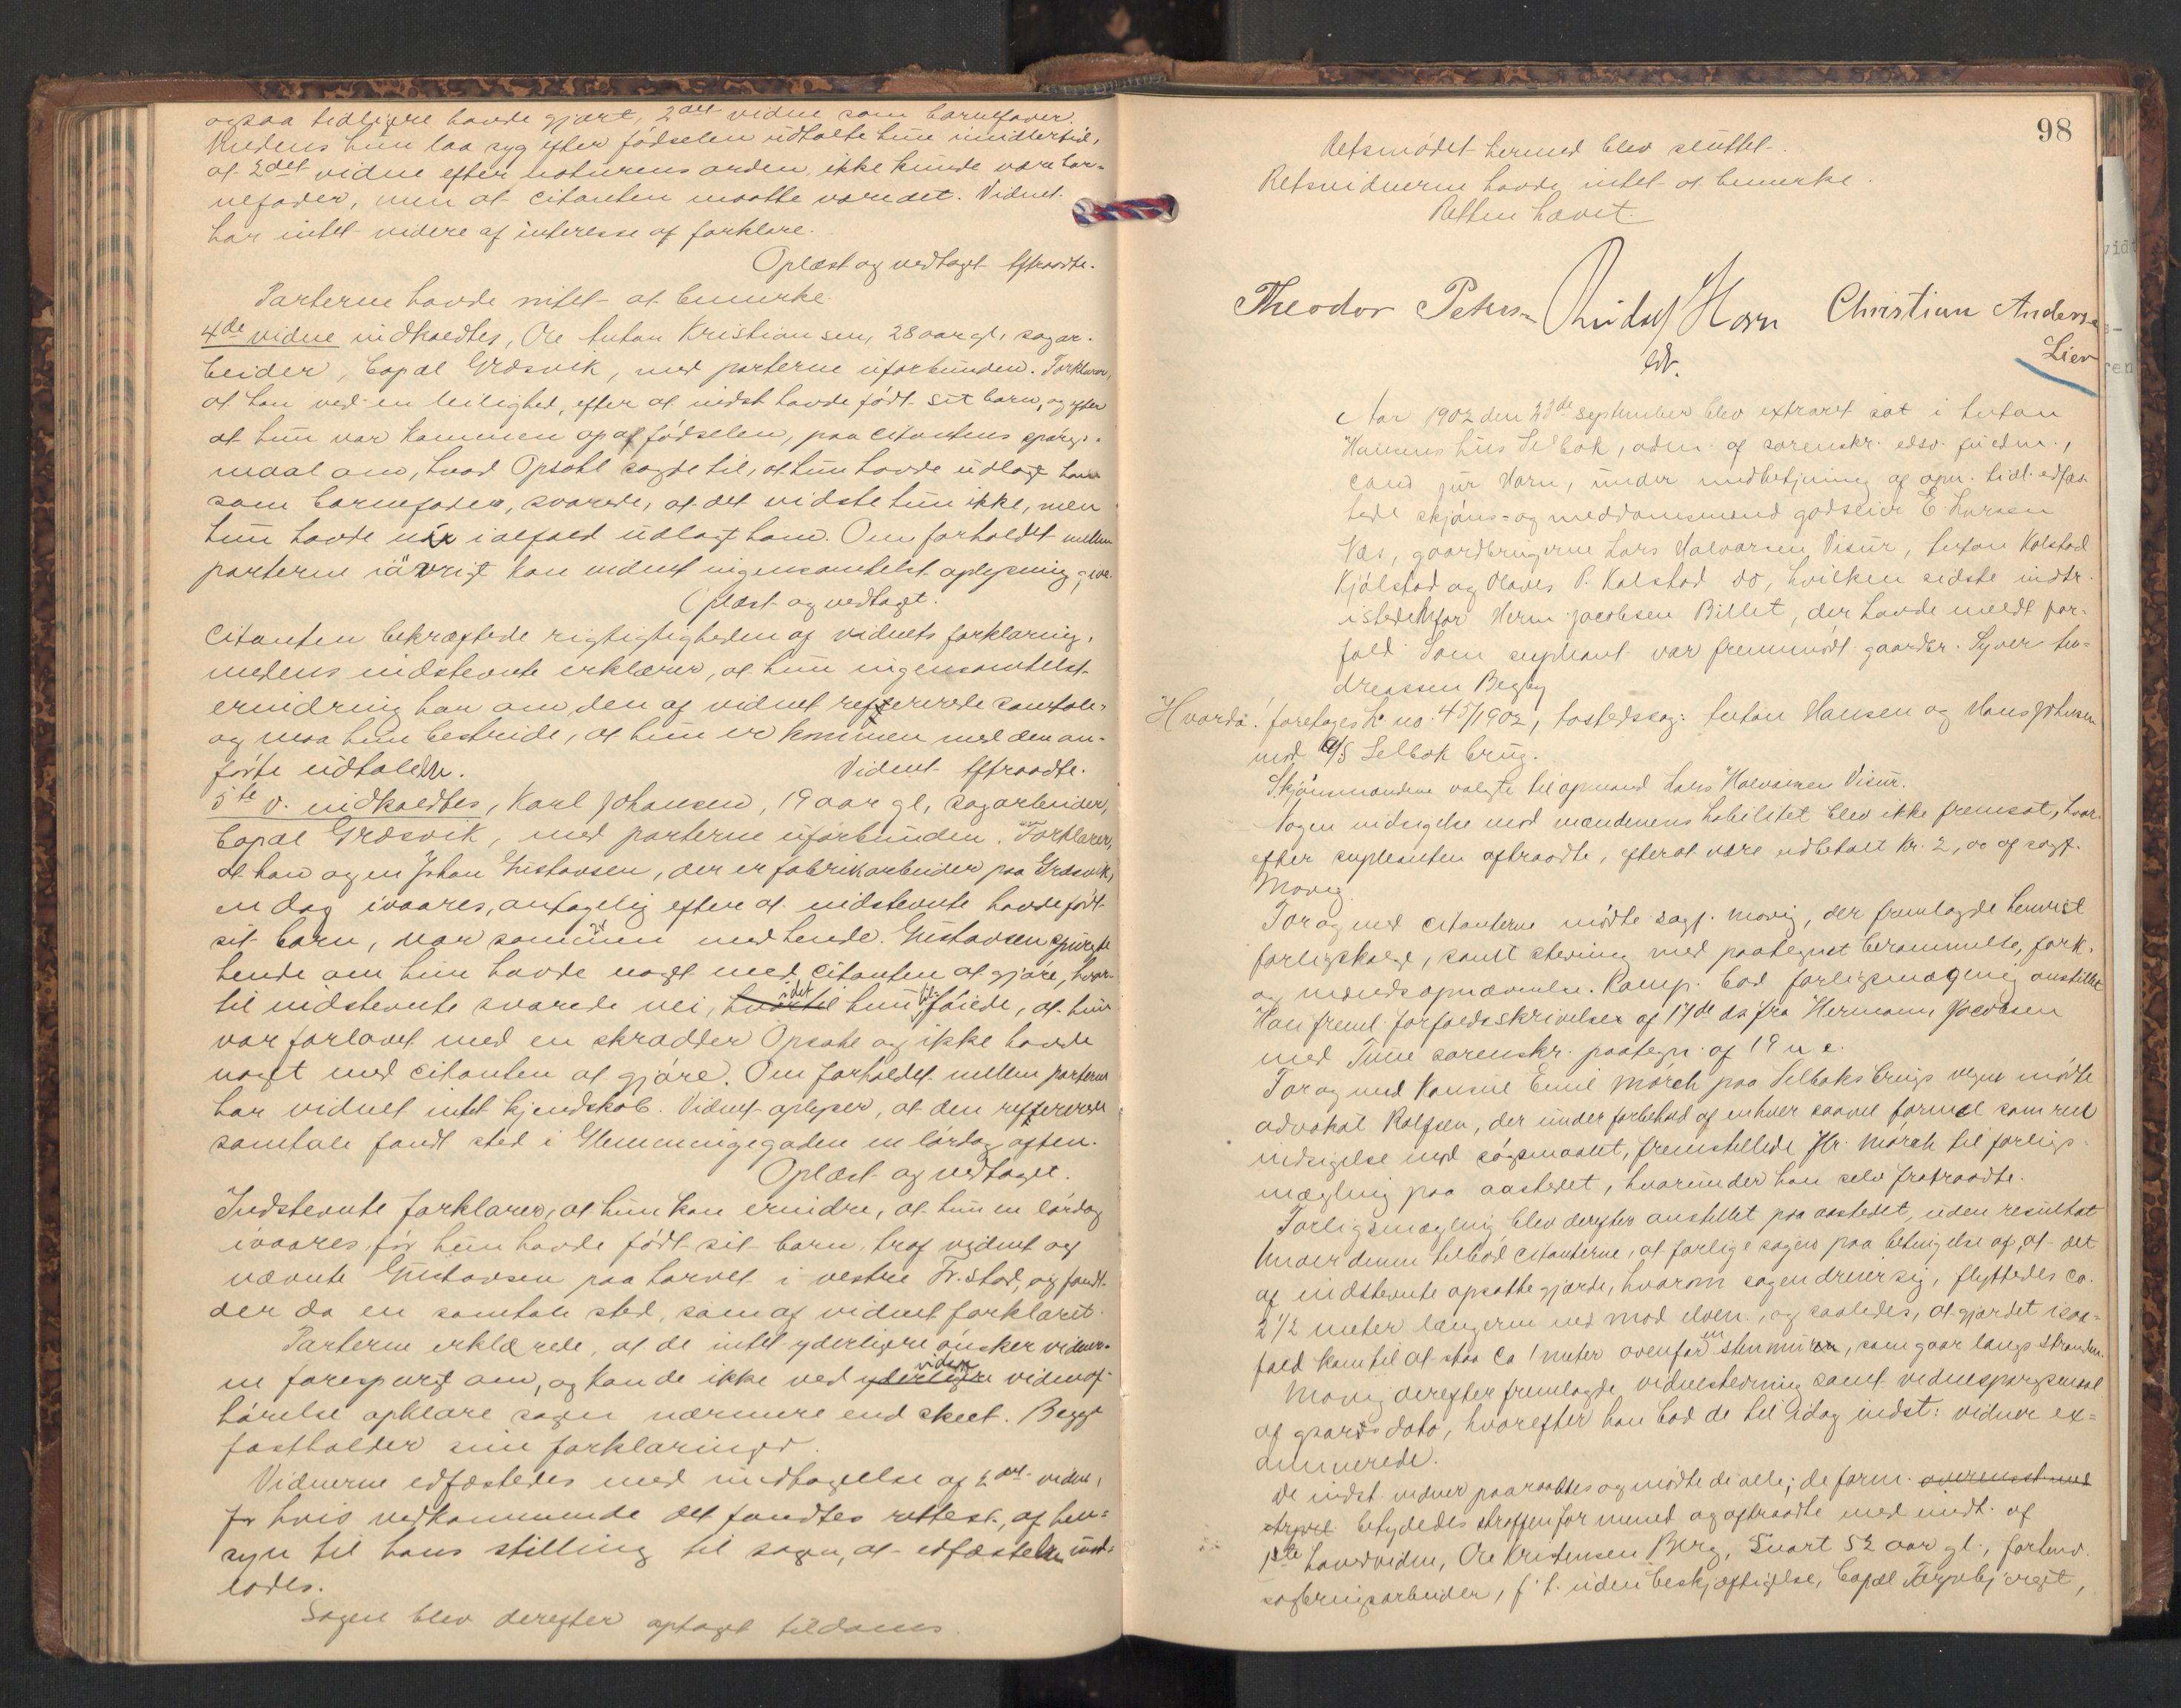 ogsaa tidligere havde gjort, 2det vidne som barnefader.
Medens hun laa syg efter fødselen udtalte hun imidlertid,
at 2det vidne efter naturens orden ikke kunde være bar-
nefader, men at citanten maatte være det. Vidnet
har intet videre af interesse at forklare.
Oplæst og vedtaget. Aftraadte.
Parterne havde intet at bemerke.
4de vidne indkaldtes, Ole Anton Kristiansen, 28 aar gl, sagar-
beider, bopæl Græsvik, med parterne uforbunden. Forklarer,
at han ved en leilighed, efter at indst havde født sit barn, og efter
at hun var kommen op af fødselen, paa citantens spørgs-
maal om, hvad Opsahl sagde til, at hun havde udlagt ham
som barnefader, svarede, at det vidste hun ikke, men
hun havde nu ialfald udlagt ham. Om forholdet mellem
parterne iøvrigt kan vidnet ingensomhelst oplysning give.
Oplæst og vedtaget.
Citanten bekræftede rigtigtigheden af vidnets forklaring,
medens indstevnte erklærer, at hun ingensomhelst
erindring har om den af vidnet refererede samtale
og maa hun bestride, at hun er kommen med den an-
førte udtalelse. Vidnet aftraadte.
5te v. indkaldtes, Karl Johansen, 19 aar gl, sagarbeider,
bopæl Græsvik, med parterne uforbunden. Forklarer,
at han og en Johan Gustavsen, der er fabrikarbeider paa Græsvik,
en dag ivaares, antagelig efter at indstevnte havde født
sit barn, var sammen med hende. Gustavsen spurgte
hende om hun havde noget med citanten at gjøre, hvor-
til indstevnte svarede nei, hvortil idet hun tilføiede, at hun
var forlovet med en skrædder Opsahl og ikke havde
noget med citanten at gjøre. Om forholdet mellem parterne
har vidnet intet kjendskab. Vidnet oplyser, at den refererede
samtale fandt sted i Glemmengegaden en lørdag aften.
Oplæst og vedtaget.
Indstevnte forklarer, at hun kan erindre, at hun en lørdag
ivaares, før hun havde født sit barn, traf vidnet og
nævnte Gustavsen paa torvet i vestre Fr.stad, og fandt
der da en samtale sted, som af vidnet forklaret.
Parterne erklærede, at de intet yderligere ønsker vidner-
ne forespurgt om, og kan de ikke ved yderligere viden vidneaf-
hørelse opklare sagen nærmere end skeet. Begge
fastholder sine forklaringer.
Vidnerne edfæstedes med undtagelse af 2det vidne,
for hvis vedkommende det fandtes rettest, af hen-
syn til hans stilling til sagen, at edfæstelse und-
lodes.
Sagen blev derefter optaget tildoms.
98
Retsmødet hermed blev sluttet.
Retsvidnerne havde intet at bemerke.
Retten hævet.
Theodor Peters Rudolf Horn Christian Anders
Lien
edv.
Aar 1902 den 23de september blev extraret sat i Anton
Hansens hus Selbak, adm. af sorenskr. edsv. fuldm.,
cand jur Horn, under medbetjening af opn. tidl. edfæs-
tede skjøns- og meddomsmænd godseier E. Larsen
Næs, gaardbrugerne Lars Halvorsen Visur, Anton Kolstad
Kjølstad og Olaves P. Kolstad do, hvilken sidste indtr.
istedetfor Herm Jacobsen Billet, der havde meldt for-
fald. Som supleant var fremmødt gaardbr. Syver An-
dreassen Begby
Hvorda! foretages L. no. 45/1902, aastedssag: Anton Hansen og Hans Johnsen
mod A/S Selbak brug.
Skjønsmændene valgte til opmand Lars Halvorsen Visur.
Nogen indsigelse mod mændenes habilitet blev ikke fremsat, hvor-
efter supleanten aftraadte, efterat være udbetalt Kr. 2,00 af sagf.
Movig.
For og med citanterne mødte sagf. Movig, der fremlagde henvist
forligsklage, samt stevning med paategnet berammelse, fork.
og mændsopnævnelse. Komp. bad forligsmægling anstillet
Han freml. forfaldsskrivelse af 17de ds fra Hermann Jacobsen
med Tune sorenskr. paategn. af 19 n. e.
For og med Konsul Emil Mørch paa Selbaks brugs vegne mødte
advokat Rolfsen, der under forbehold af enhver saavel formel som reel
indsigelse mod søgsmaalet, fremstillede Hr. Mørch til forligs-
mægling paa aastedet, hvorunder han selv fratraadte.
Forligsmægling blev derefter anstillet paa aastedet, uden resultat
Under denne tilbød citanterne, at forlige sagen paa betingelse af, at det
af indstevnte opsatte gjærde, hvorom sagen dreier sig, flyttedes ca.
2 1/2 meter længere ned mod elven, og saaledes, at gjærdet isaa-
fald kom til at staa ca 1 meter ovenfor en stenmur, som gaar langs stranden.
Movig derefter fremlagde vidnestevning samt vidnespørgsmaal
af gaars dato, hvorefter han bad de til idag indst: vidner ex-
aminerede.
De indst. vidner paaraabtes og mødte de alle; de form. overensst med
betydedes straffen for mened og aftraadte med undt. af
1ste hovedvidne, Ole Kristensen Berg, snart 52 aar gl., forhenv.
sagbrugsarbeider, f. t. uden beskjæftigelse, bopæl Torpebjerget,